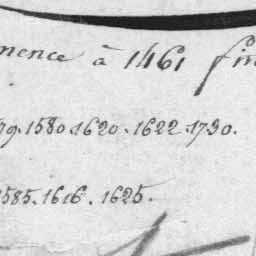 mence à 1461 fin
79. 1580. 1620. 1622. 1730.
1585. 1616. 1625.